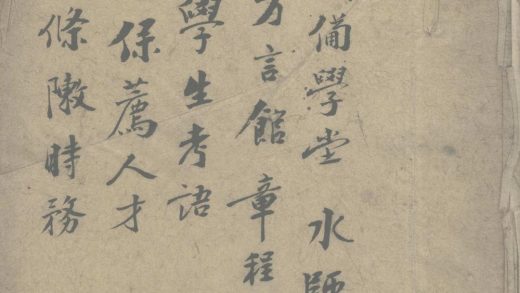 備學堂 水師
方言館章程
學生考語
保薦人才
條陳時務